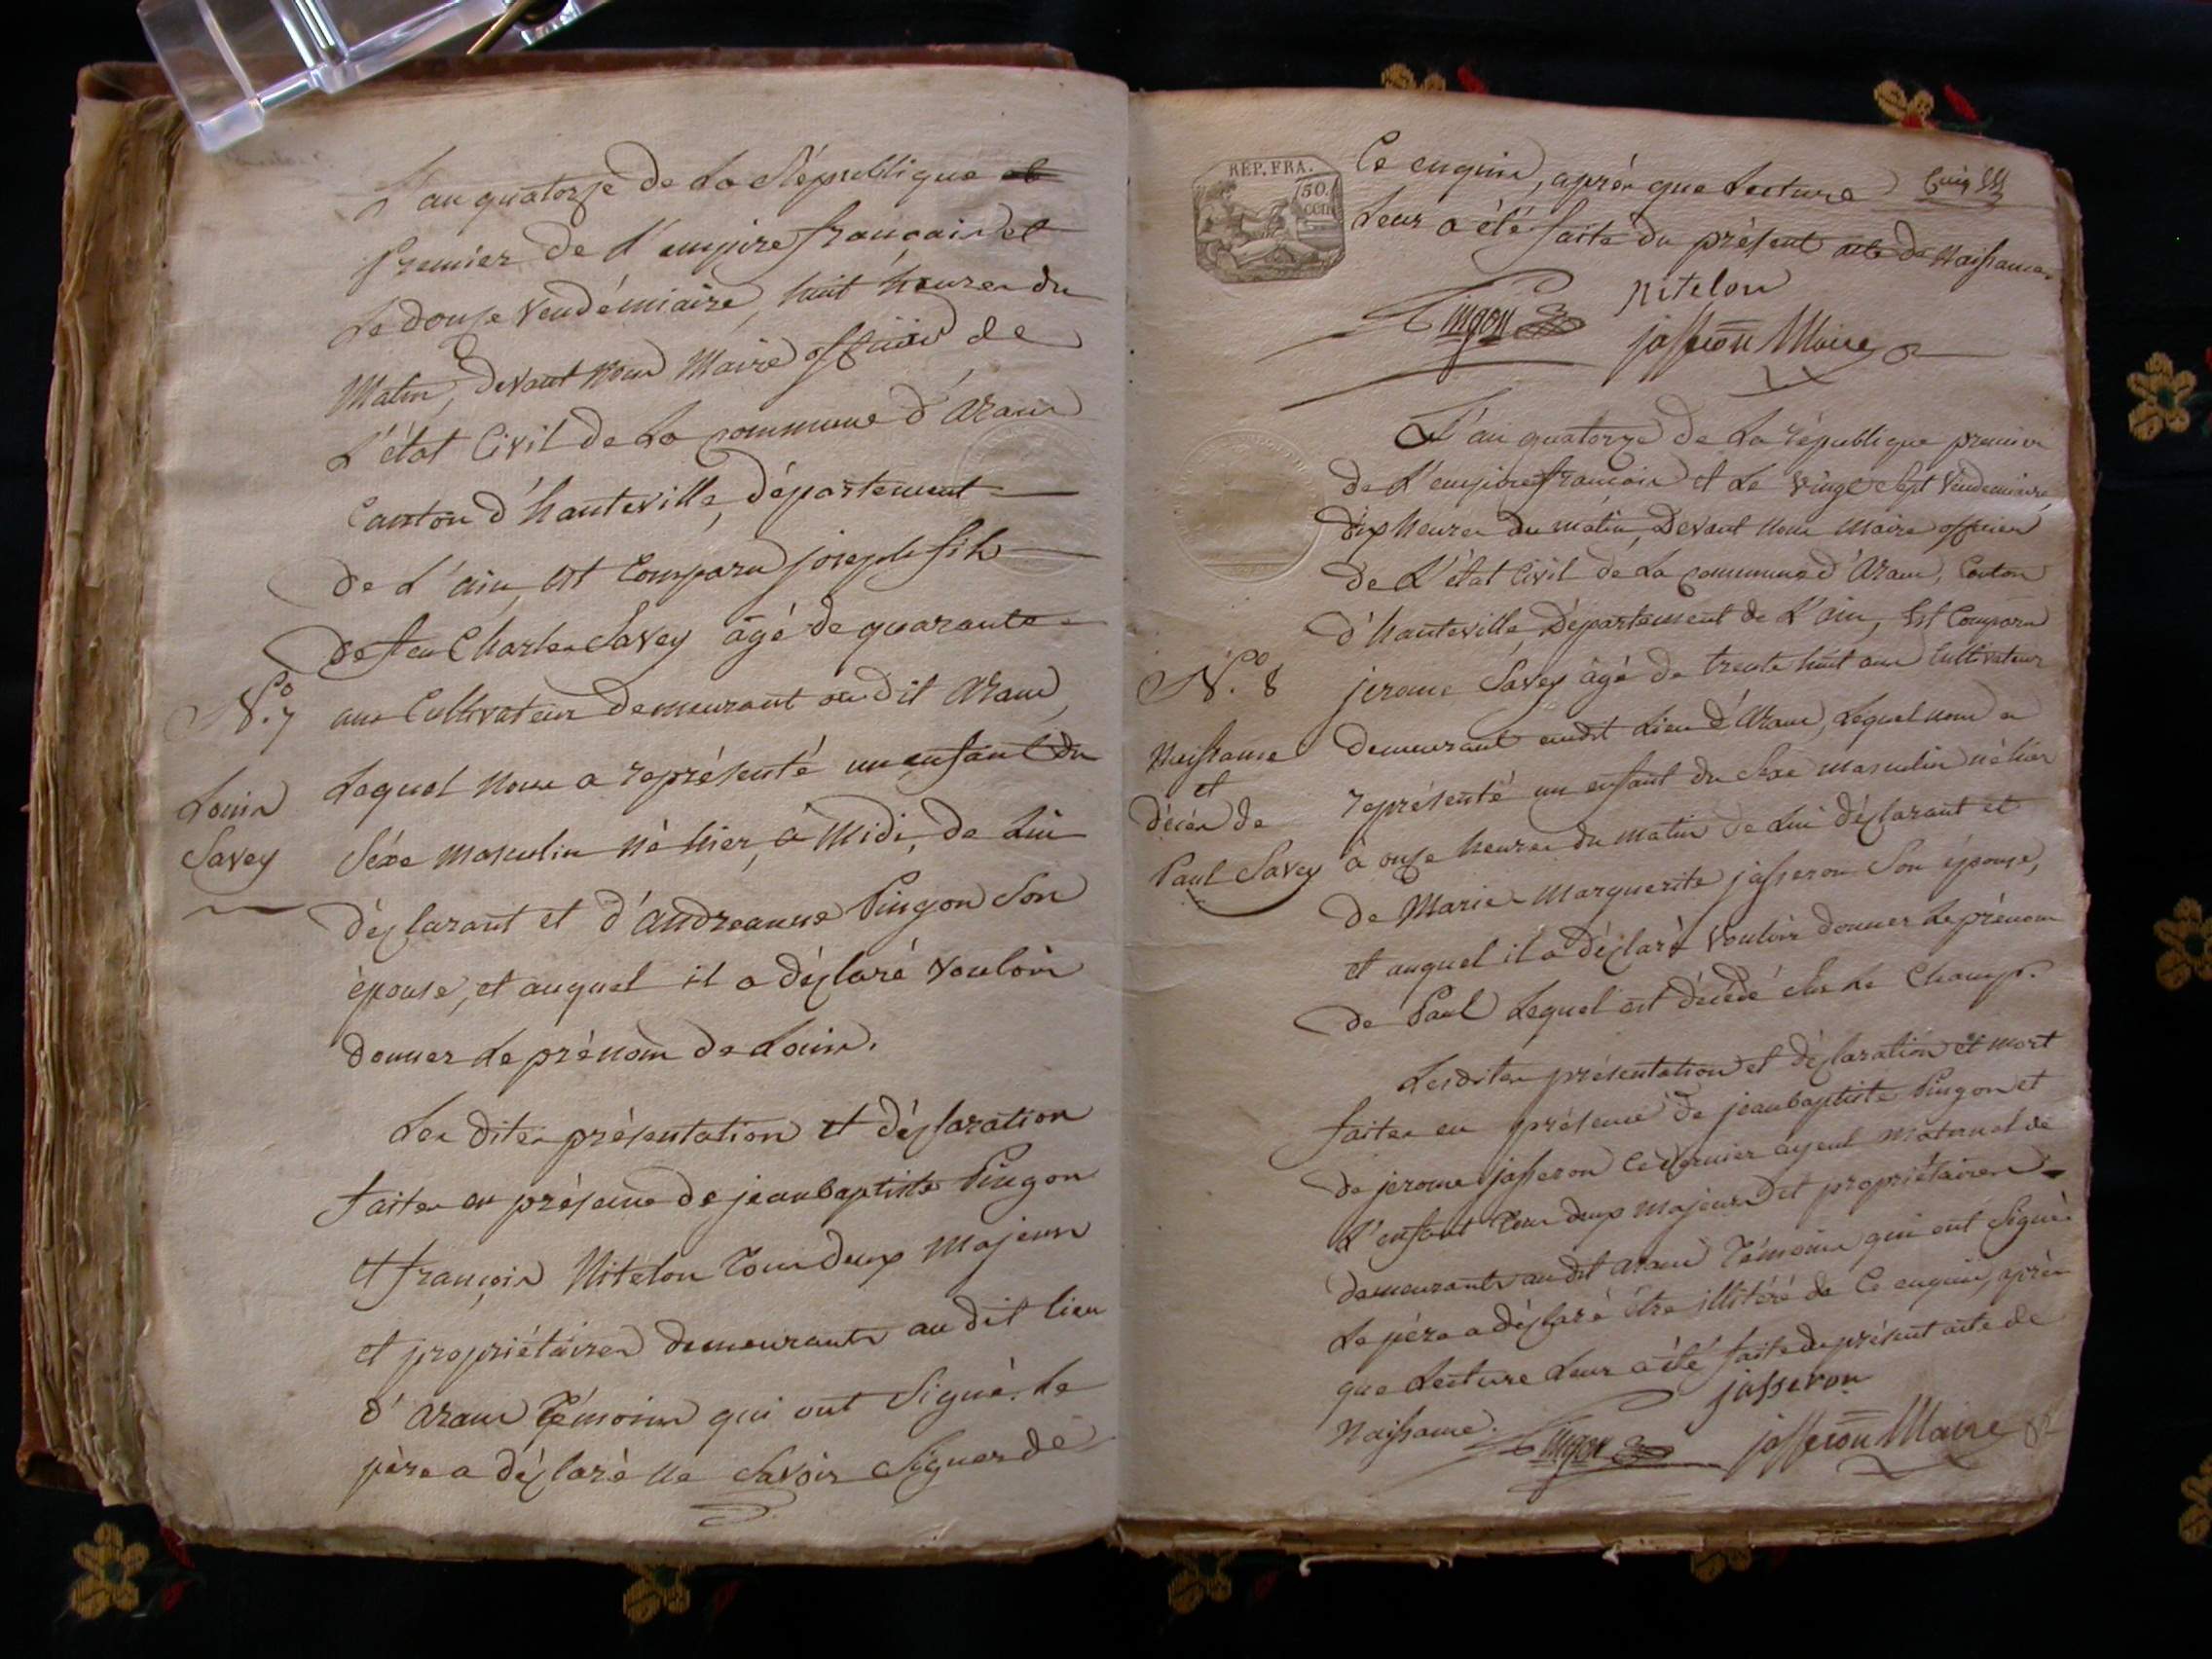 L'an quatorze de la République et
premier de l'empire français et
le douze vendémiaire, huit heures du
matin, devant nous Maire officier de
l'état civil de la commune d'aranc
canton d'hauteville, département
de l'ain, est comparu joseph fils
de feu Charles Savey agé de quarante
N.º 7 ans Cultivateur demeurant au dit aranc,
Louis
Savey
lequel nous a représenté un enfant du
séxe masculin né hier, à midi, de lui
déclarant et d'andreanne Pingon son
épouse, et auquel il a déclaré vouloir
donner le prénom de Louis.
Les dites présentation et déclaration
faites en présence de jeanbaptiste Pingon
et françois Nitelon tous deux majeurs
et propriétaires demeurants au dit lieu
d'aranc témoins qui ont signé. le
père a déclaré ne savoir signer de
REP. FRA.
50
cen
Ce enquis, après que lecture
leur a été faite du présent acte de Naissance.
Pingon nitelon
jasseron Maire
L'an quatorze de la république premier
de l'empire français et le vingt sept vendemiaire,
dix heures du matin, devant nous maire officier
de l'état civil de la commune d'aranc, canton
d'hauteville, département de l'ain, est comparu
N.º 8 jerome Savey âgé de trente huit ans cultivateur
Naissance
et
décès de
Paul Savey
demeurant audit lieu d'aranc, lequel nous a
représenté un enfant du sexe masculin né hier
à onze heures du matin de lui déclarant et
de Marie Marguerite jasseron son épouse,
et auquel il a déclaré vouloir donner le prénom
de Paul lequel est décédé sur le champ.
Lesdites présentation et déclaration et mort
faites en présence de jeanbaptiste Pingon et
de jerome jasseron ce dernier ayeul maternel de
l'enfant tous deux majeurs et propriétaires
demeurants au dit aranc témoins qui ont signé
le père a déclaré être illitéré de ce enquis, après
que lecture leur a été faite du présent acte de
Naissance. jasseron
Pingon jasseron Maire